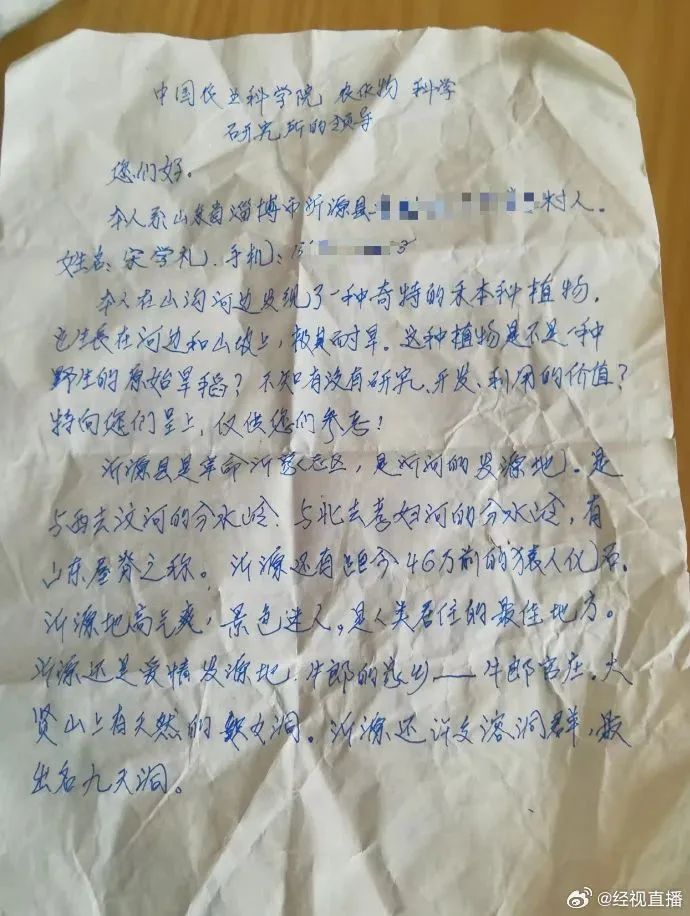 中国农业科学院 农作物 科学
研究所的领导
您们好.
本人系山东省淄博市沂源县 村人.
姓名:宋学礼.手机:15 3
本人在山沟河边发现了一种奇特的禾本种植物.
它生长在河边和山坡上,极其耐旱.这种植物是不是一种
野生的原始旱稻?不知有没有研究、开发、利用的价值?
特向您们呈上,仅供您们参考!
沂源县是革命沂蒙老区,是沂河的发源地.是
与西去汶河的分水岭.与北去孝妇河的分水岭,有
山东屋脊之称。沂源还有距今46万前的猿人化石.
沂源地高气爽,景色迷人,是人类居住的最佳地方。
沂源还是爱情发源地.牛郎的故乡——牛郎官庄.大
贤山上有天然的织女洞。沂源还许多溶洞群,最
出名九天洞。
@经视直播